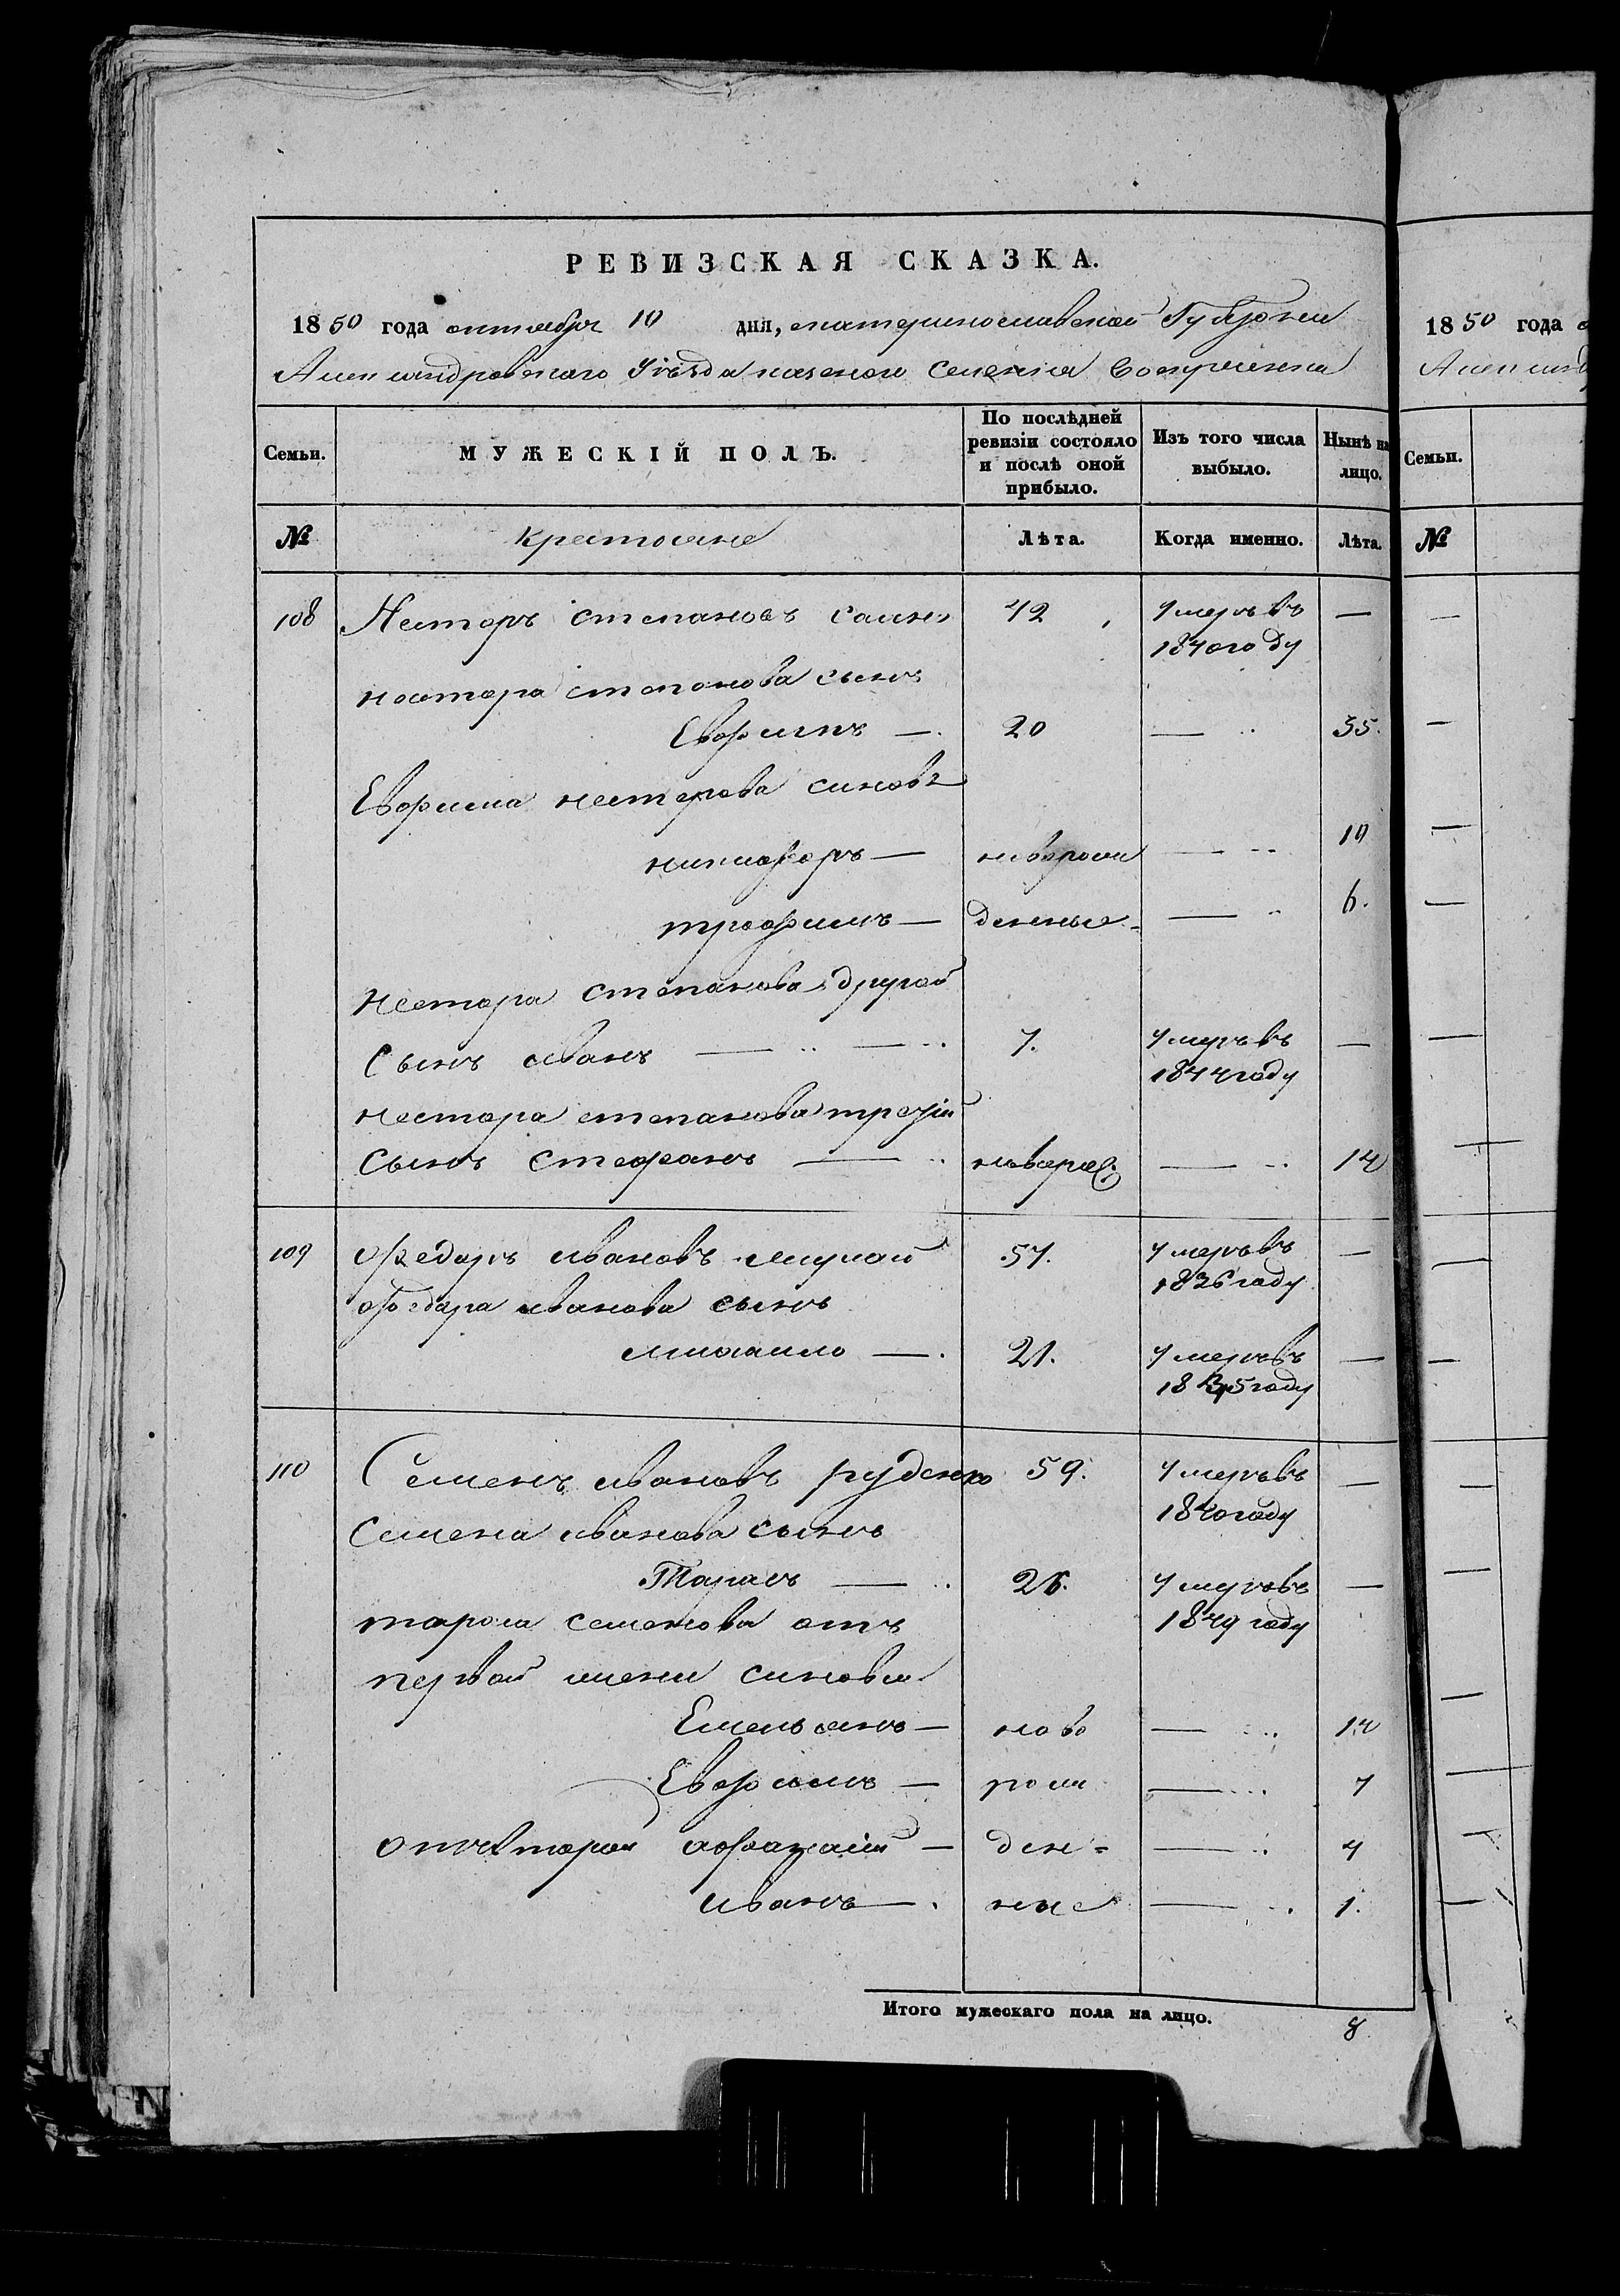 РЕВИЗСКАЯ СКАЗКА.
1850 года октября 10 дня, екатеринославской Губернии
Александровскаго Уѣзда казенаго Селенія
Семьи. МУЖЕСКІЙ ПОЛЪ. По послѣдней ревизіи состояло и послѣ оной прибыло. Изъ того числа выбыло. Нынѣ на лицо.
№ Крестьяне Лѣта. Когда именно. Лѣта.
108 Несторъ степановъ 42 умеръ въ —
1840 году
нестора степанова сынъ
Евфимъ — 20 — 35.
Евфима нестерова синовя
никифоръ — новорож — 10
трофимъ — денные — 6.
Нестора степанова другой
Сынъ иванъ — 7. умеръ въ —
1844 году
нестора степанова третій
Сынъ стефанъ — новорож — 14
109 Федоръ ивановъ 57. умеръ въ —
1836 году
Федора иванова сынъ
михаило — 21. умеръ въ —
18 5 году
110 Семенъ ивановъ руденко 59. умеръ въ —
1840 году
Семена иванова сынъ
Тарасъ — 26. умеръ въ —
1849 году
тараса семенова отъ
первой жени синовя
Емельянъ — ново — 12
Евфимъ — рож — 7
отъ второй афанасій — ден — 4
иванъ — ные — 1.
Итого мужескаго пола на лицо. 8
1850 года
Семьи.
№